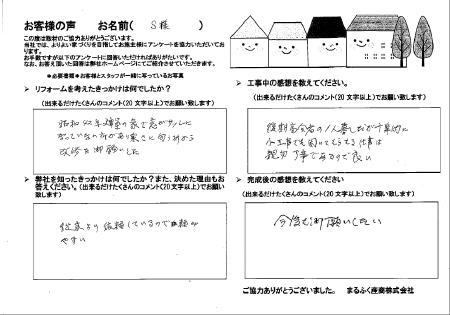 お客様の声　お名前（　S様　）
この度は取材のご協力ありがとうございます。
当社では、よりよい家づくりを目指してお施主様にアンケートを協力いただいております。
お手数ですが以下のアンケートに回答いただければありがたいです。
なお、お答え頂いた回答は弊社ホームページにてご紹介させていただきます。
●必要書類●お客様とスタッフが一緒に写っているお写真
➢ リフォームを考えたきっかけは何でしたか？
（出来るだけたくさんのコメント（20 文字以上）でお願い致します）
昭和42年建築の家で窓がサッシに
なっていない所があり寒さに
改修を御願いした
➢ 弊社を知ったきっかけは何でしたか？また、決めた理由もお答えください。（出来るだけたくさんのコメント（20 文字以上）でお願い致します）
従来より依頼しているので
やすい
➢ 工事中の感想を教えてください。
（出来るだけたくさんのコメント（20 文字以上）でお願い致します）
後期高令者の1人暮しだが
小工事でも
親切丁寧であるので良い
➢ 完成後の感想を教えてください
（出来るだけたくさんのコメント（20 文字以上）でお願い致します）
今後も御願いしたい
ご協力ありがとうございました。　まるふく産商株式会社